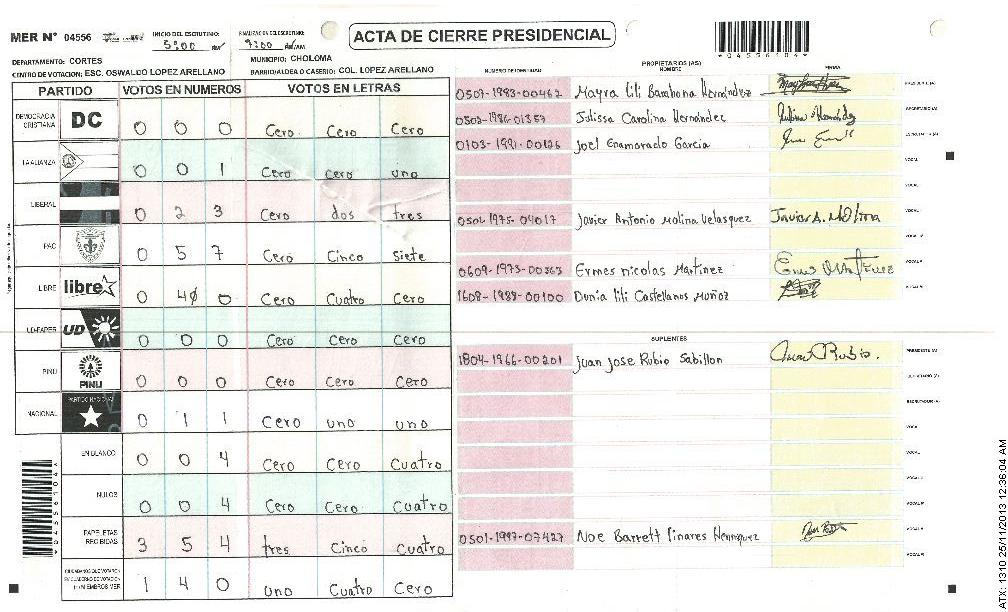 MER N° 04556
INICIO DEL ESCRUTINIO:
5:00
FINALIZACION DEL ESCRUTINIO:
9:00 /AM
ACTA DE CIERRE PRESIDENCIAL
*04556104*
DEPARTAMENTO: CORTES
MUNICIPIO: CHOLOMA
CENTRO DE VOTACION: ESC. OSWALDO LOPEZ ARELLANO
BARRIO/ALDEA O CASERIO: COL. LOPEZ ARELLANO
PARTIDO VOTOS EN NUMEROS VOTOS EN LETRAS
DEMOCRACIA CRISTIANA DC 0 0 0 Cero Cero Cero
LA ALIANZA 0 0 1 Cero Cero uno
LIBERAL 0 2 3 Cero dos tres
PAC 0 5 7 Cero Cinco Siete
LIBRE libre 0 4 0 Cero Cuatro Cero
UD-FAPER UD 0 0 0 Cero Cero Cero
PINU PINU 0 0 0 Cero Cero Cero
NACIONAL PARTIDO NACIONAL 0 1 1 Cero uno uno
EN BLANCO 0 0 4 Cero Cero Cuatro
NULOS 0 0 4 Cero Cero Cuatro
PAPELETAS RECIBIDAS 3 5 4 tres Cinco Cuatro
CIUDADANOS QUE VOTARON 1 4 0 uno Cuatro Cero
NUMERO DE IDENTIDAD
PROPIETARIOS (AS)
NOMBRE
FIRMA
Mayra lili Barahona Hernández PRESIDENTE (A)
Julissa Carolina Hernández SECRETARIO (A)
0103-1991-00126 Joel Enamorado Garcia ESCRUTADOR (A)
VOCAL
VOCAL
0501-1975-04017 Javier Antonio Molina Velasquez Javier A. Molina VOCAL
VOCAL
0609-1973-00363 Ermes nicolas Martinez VOCAL
1608-1988-00100 Dunia lili Castellanos Muñoz VOCAL
SUPLENTES
1804-1966-00201 Juan Jose Rubio Sabillon PRESIDENTE (A)
SECRETARIO (A)
ESCRUTADOR (A)
VOCAL
VOCAL
VOCAL
VOCAL
0501-1997-07427 Noe Barrett linares Henriquez VOCAL
VOCAL
ATX: 1310 25/11/2013 12:36:04 AM